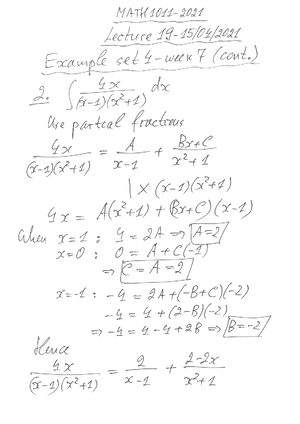 MATH1011-2021
Lecture 19-15/04/2021
Example set 4-week 7 (cont.)
2. ∫ 4x/((x-1)(x²+1)) dx
Use partial fractions
4x/((x-1)(x²+1)) = A/(x-1) + (Bx+C)/(x²+1)
| × (x-1)(x²+1)
4x = A(x²+1) + (Bx+C)(x-1)
When x=1 : 4 = 2A ⇒ A=2
x=0 : 0 = A + C(-1)
⇒ C = A = 2
x=-1 : -4 = 2A + (-B+C)(-2)
-4 = 4 + (2-B)(-2)
⇒ -4 = 4 - 4 + 2B ⇒ B = -2
Hence
4x/((x-1)(x²+1)) = 2/(x-1) + (2-2x)/(x²+1)